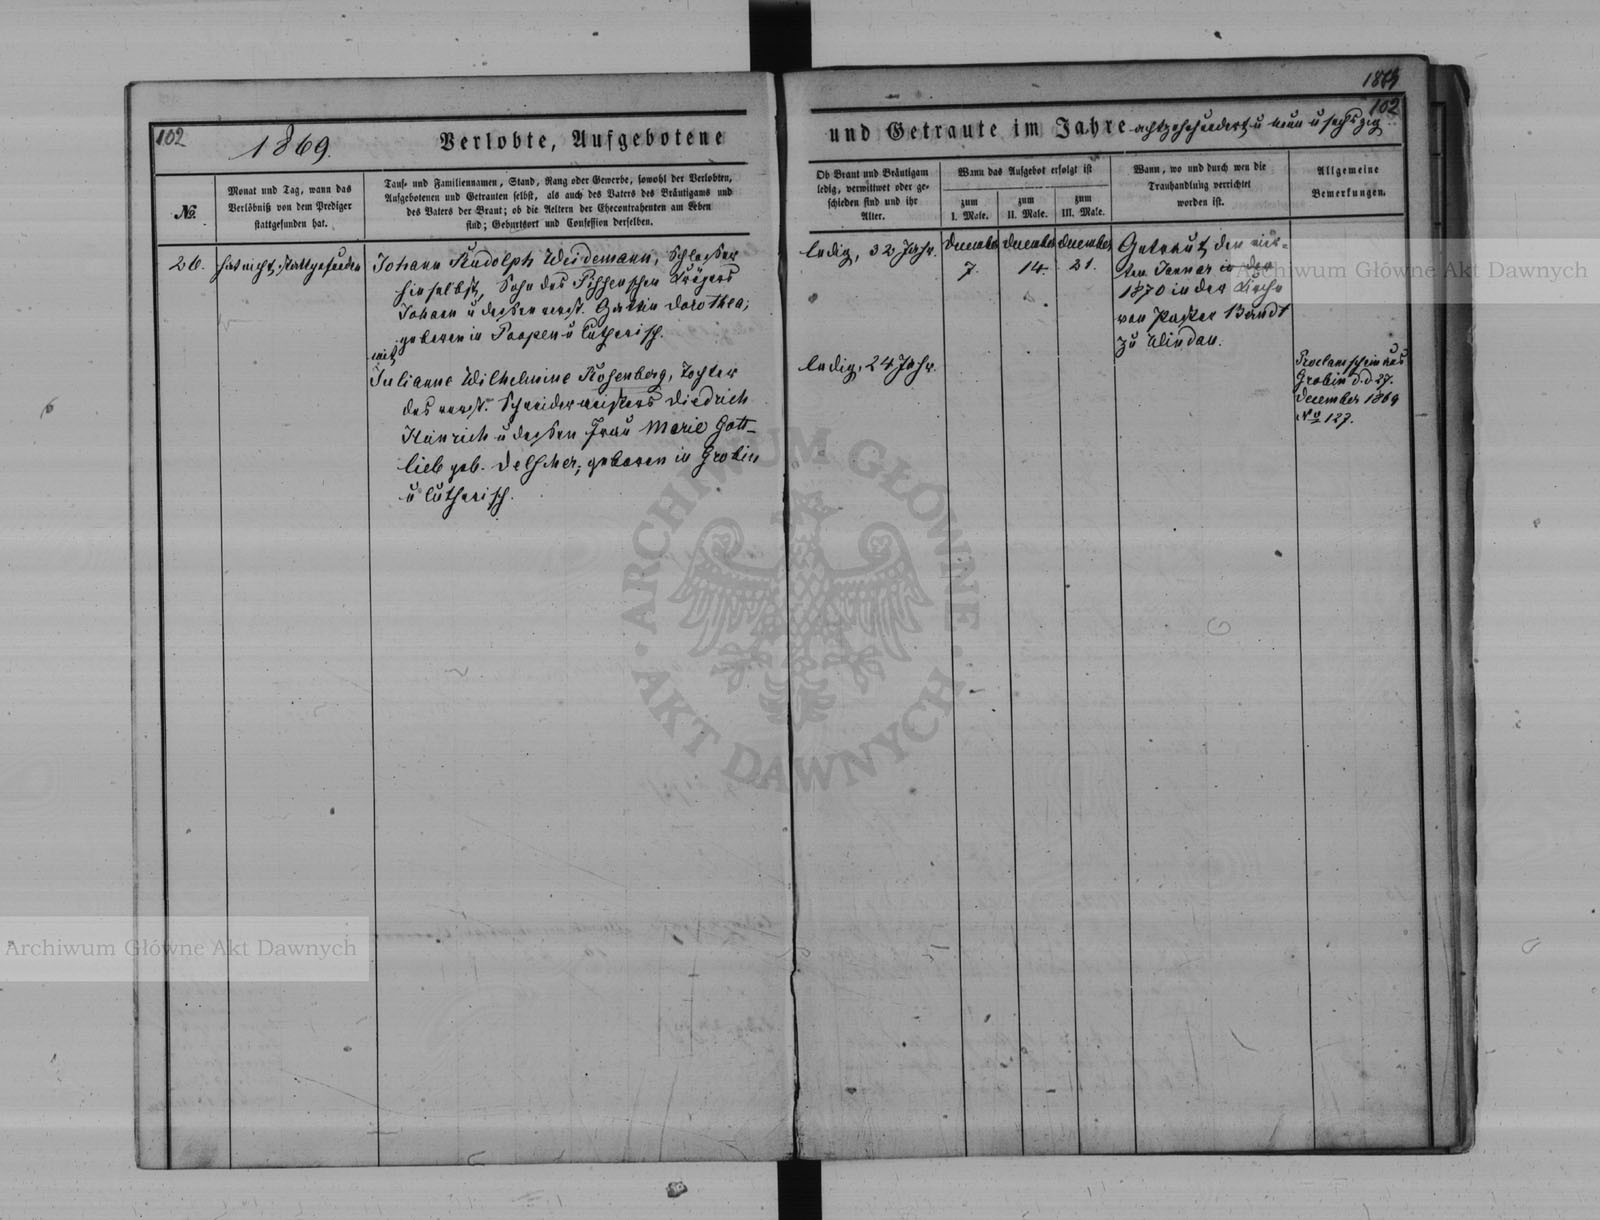 102
1869.
Verlobte, Aufgebotene
№.
Monat und Tag, wann das
Verlöbniß von dem Prediger
stattgefunden hat.
Tauf- und Familiennamen, Stand, Rang oder Gewerbe, sowohl der Verlobten,
Aufgebotenen und Getrauten selbst, als auch des Vaters des Bräutigams und
des Vaters der Braut; ob die Aeltern der Ehecontrahenten am Leben
sind; Geburtsort und Confession derselben.
26.
hat nicht stattgefunden
Johann Rudolph Weidemann, Schlosser
hieselbst, Sohn des Krügers
Johann u dessen verst. Gattin Dorothea;
geboren in Poopen u lutherisch.
mit
Julianne Wilhelmine Rosenberg, Tochter
des verst. Schneidermeisters Diedrich
Heinrich u dessen Frau Marie Gott-
lieb geb. ; geboren in Grobin
u lutherisch.
1869
102
und Getraute im Jahre achtzehnhundert u neun u sechszig
Ob Braut und Bräutigam
ledig, verwittwet oder ge-
schieden sind und ihr
Alter.
Wann das Aufgebot erfolgt ist
zum
I. Male.
zum
II. Male.
zum
III. Male.
Wann, wo und durch wen die
Trauhandlung verrichtet
worden ist.
Allgemeine
Bemerkungen.
ledig, 32 Jahr.
December
7.
December
14.
December
21.
Getraut den vier-
ten Januar in der
1870 in der Kirche
von Pastor Bandt
zu Windau.
ledig, 24 Jahr.
Proclamschein aus
Grobin d.d 27.
December 1869
No 127.
Archiwum Główne Akt Dawnych
ARCHIWUM GŁÓWNE · AKT DAWNYCH ·
Archiwum Główne Akt Dawnych